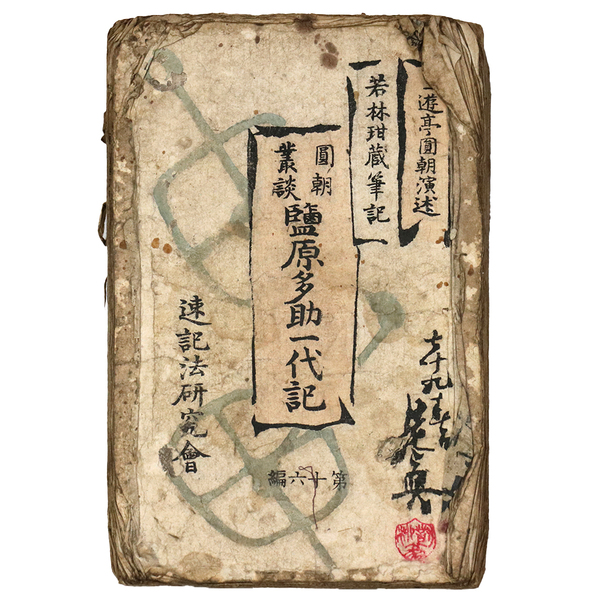 遊亭圓朝演述
若林玵蔵筆記
圓朝叢談
鹽原多助一代記
速記法研究會
第十六編